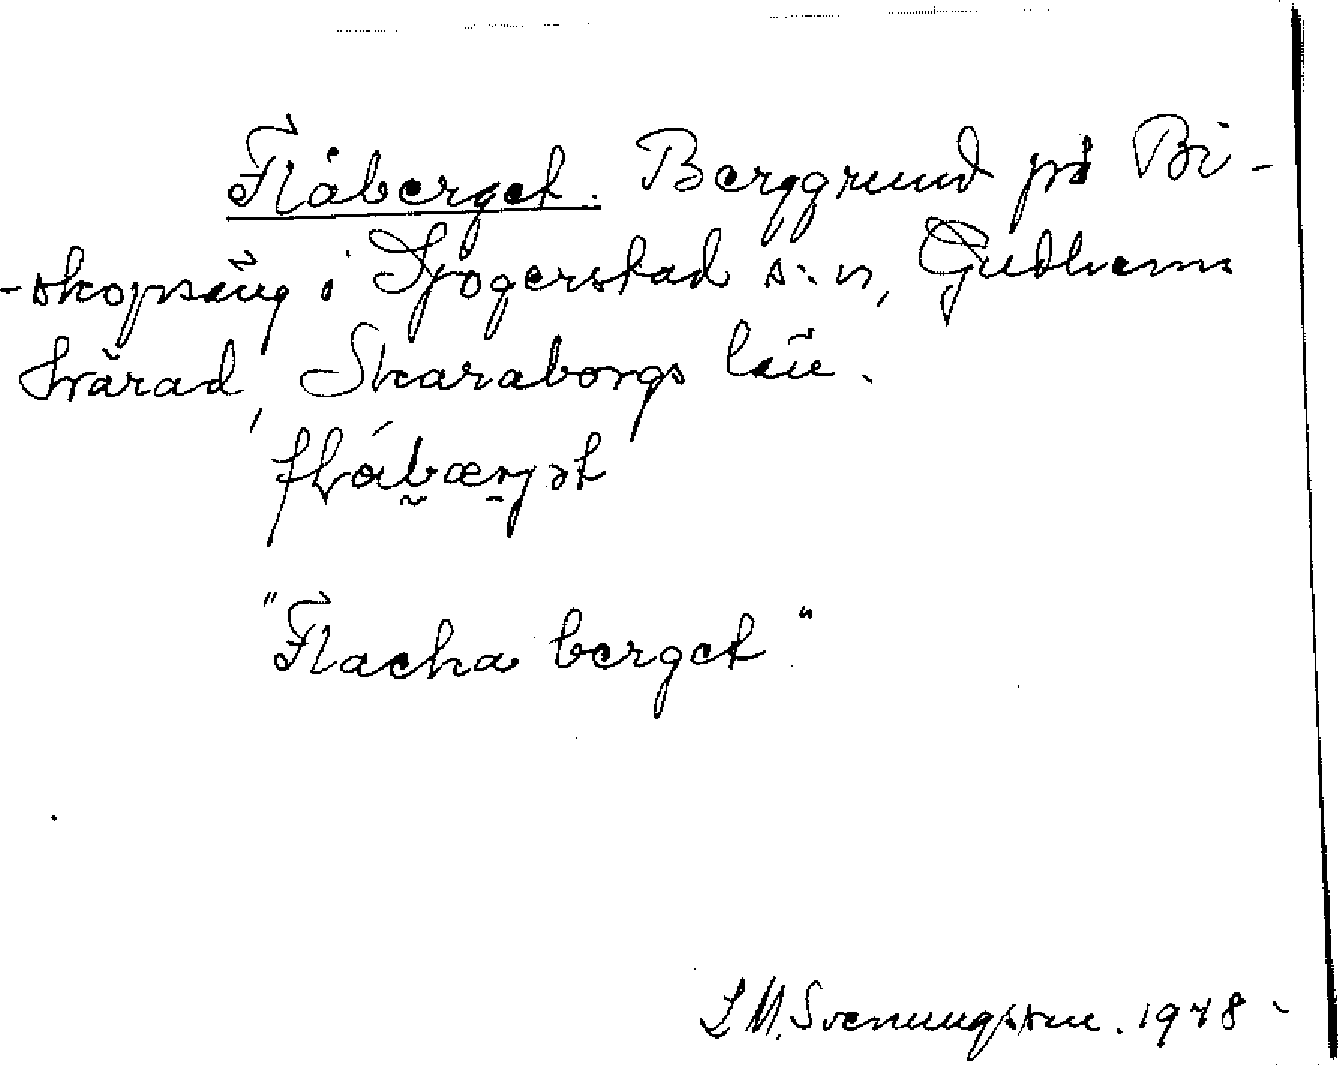 Flåberget. Berggrund på Bi-
-skopsäng i Sjogerstad s:n, Gudhems
härad, Skaraborgs län.
"Flacha berget"
L M. Svenungsson. 1948